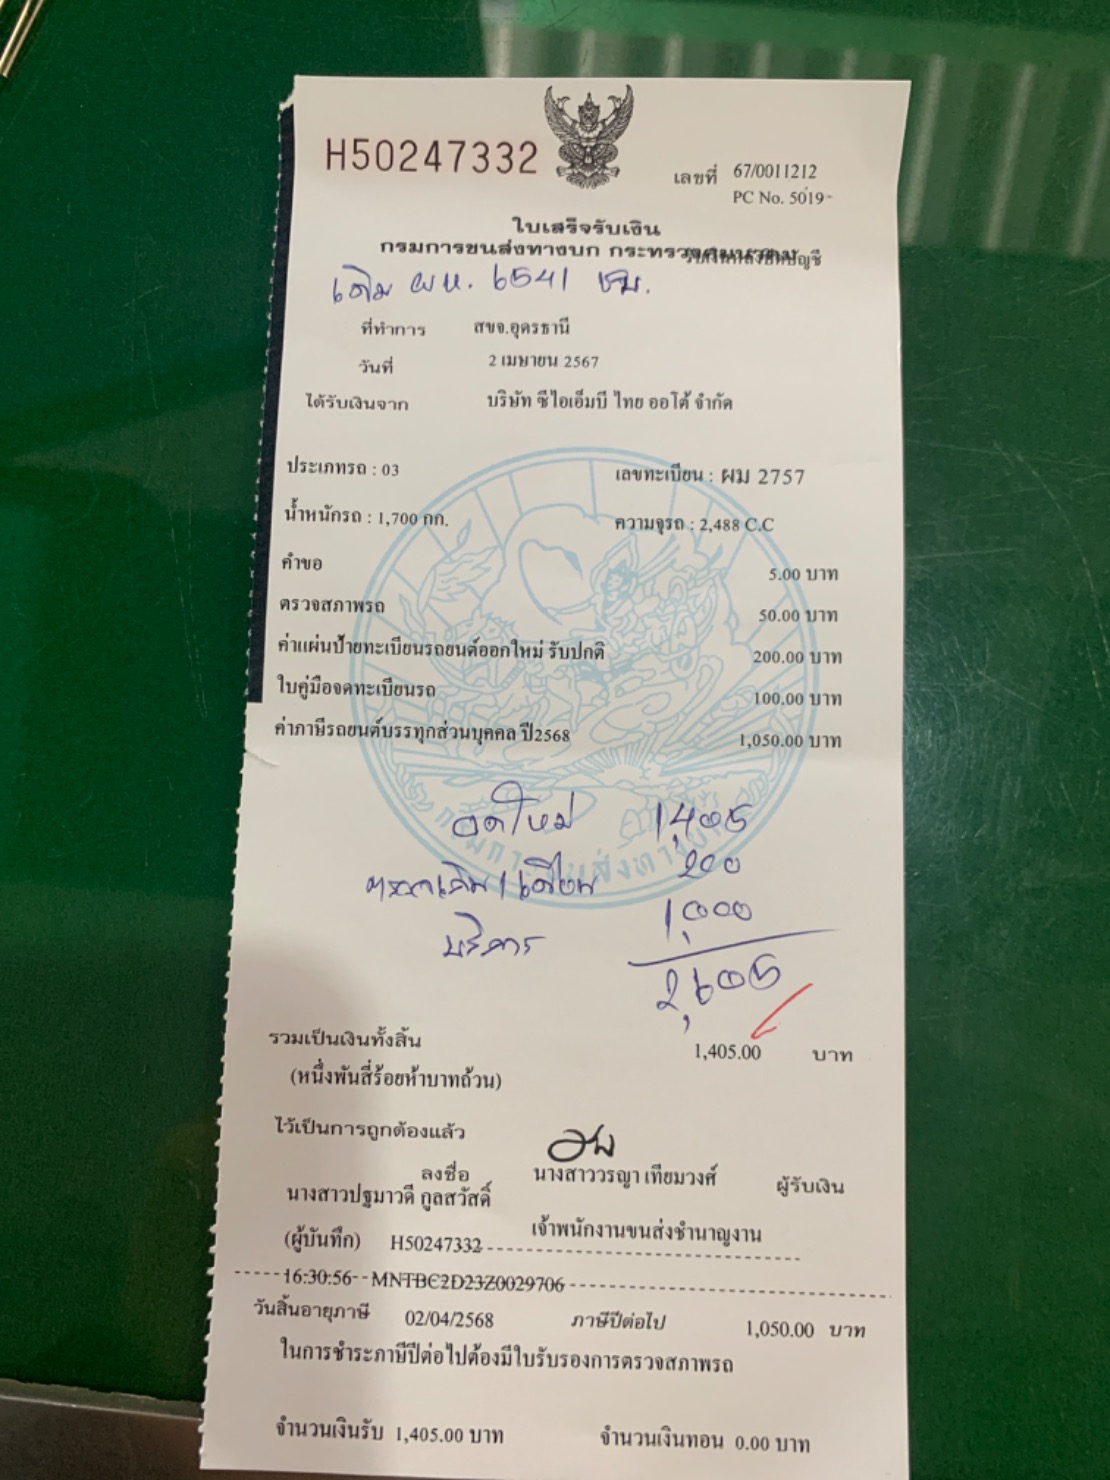 H50247332
เลขที่ 67/0011212
PC No. 5019-
ใบเสร็จรับเงิน
กรมการขนส่งทางบก กระทรวงคมนาคม
เดิม ผห. 6541 ชบ.
ที่ทำการ สขจ.อุดรธานี
วันที่ 2 เมษายน 2567
ได้รับเงินจาก บริษัท ซีไอเอ็มบี ไทย ออโต้ จำกัด
ประเภทรถ : 03 เลขทะเบียน : ผม 2757
น้ำหนักรถ : 1,700 กก. ความจุรถ : 2,488 C.C
คำขอ 5.00 บาท
ตรวจสภาพรถ 50.00 บาท
ค่าแผ่นป้ายทะเบียนรถยนต์ออกใหม่ รับปกติ 200.00 บาท
ใบคู่มือจดทะเบียนรถ 100.00 บาท
ค่าภาษีรถยนต์บรรทุกส่วนบุคคล ปี2568 1,050.00 บาท
จดใหม่ 1,405
200
บริการ 1,000
2,605
รวมเป็นเงินทั้งสิ้น 1,405.00 บาท
(หนึ่งพันสี่ร้อยห้าบาทถ้วน)
ไว้เป็นการถูกต้องแล้ว
ลงชื่อ นางสาววรญา เทียมวงศ์ ผู้รับเงิน
นางสาวปฐมาวดี กูลสวัสดิ์
เจ้าพนักงานขนส่งชำนาญงาน
(ผู้บันทึก) H50247332
16:30:56 MNTBC2D23Z0029706
วันสิ้นอายุภาษี 02/04/2568 ภาษีปีต่อไป 1,050.00 บาท
ในการชำระภาษีปีต่อไปต้องมีใบรับรองการตรวจสภาพรถ
จำนวนเงินรับ 1,405.00 บาท จำนวนเงินทอน 0.00 บาท